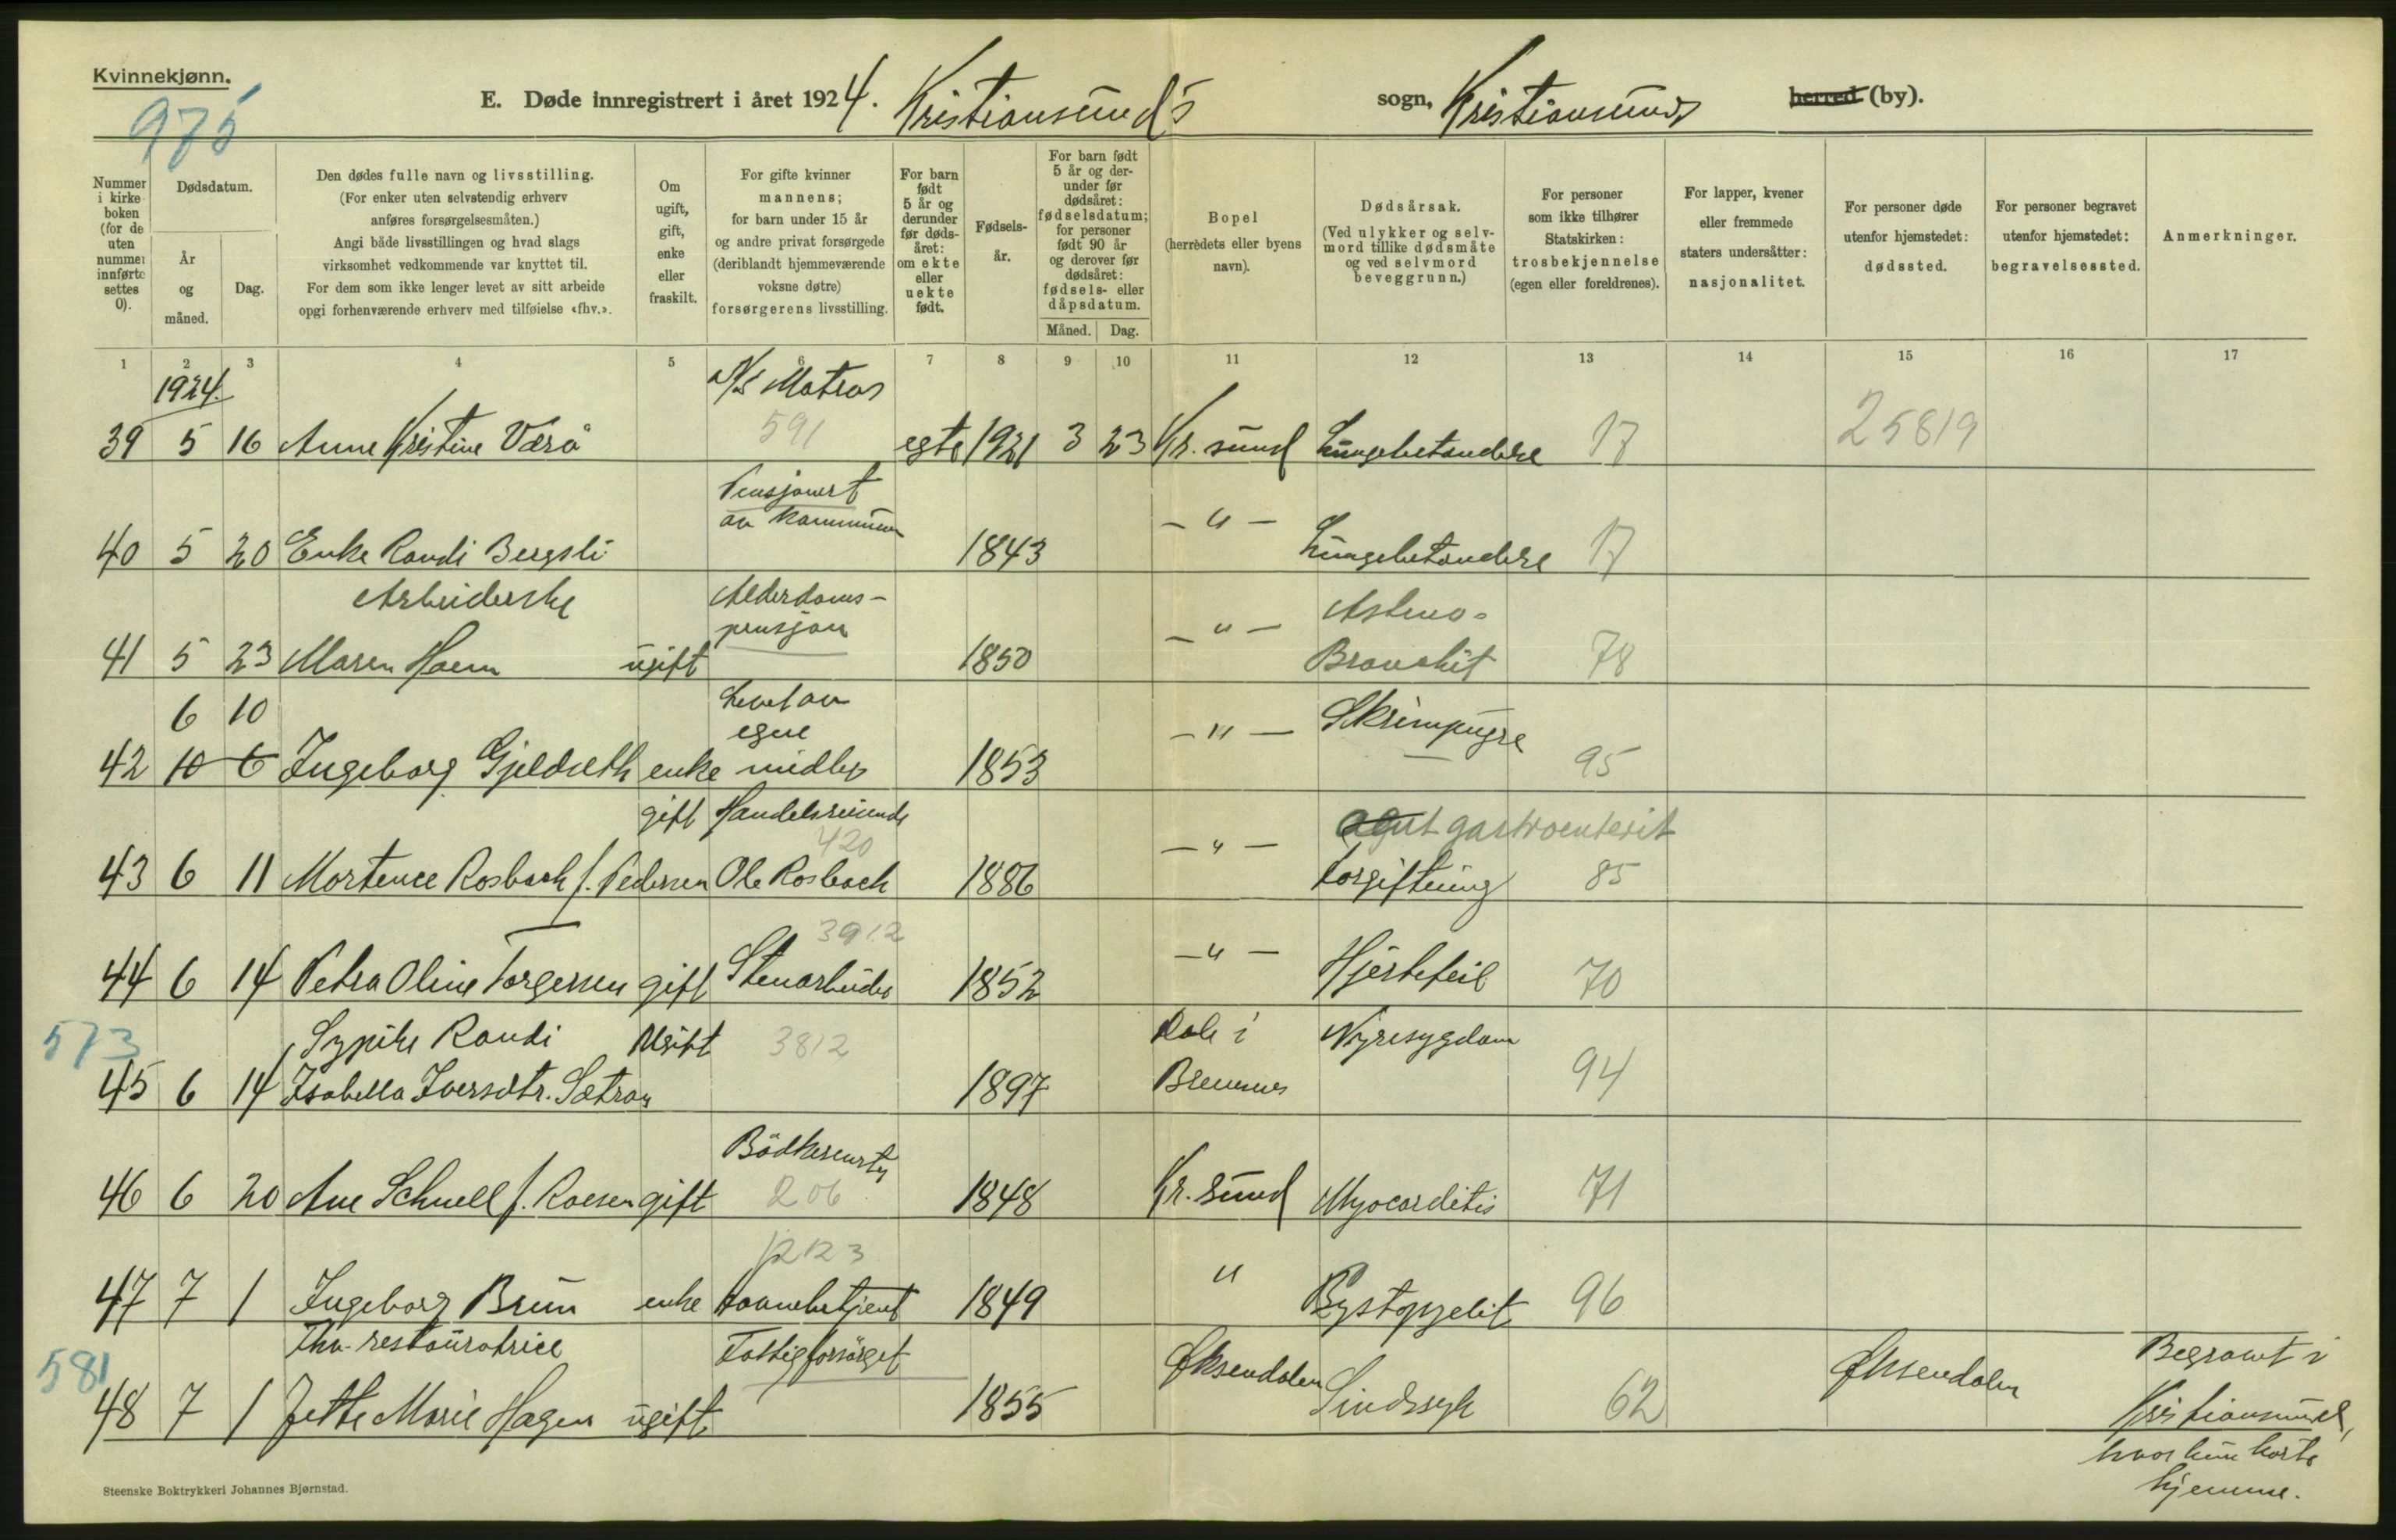 Kvinnekjønn.
975
E. Døde innregistrert i året 1924. Kristiansund's sogn, Kristiansunds herred (by).
Nummer i kirkeboken (for de uten nummer innførte settes 0).
Dødsdatum.
År og måned.
Dag.
Den dødes fulle navn og livsstilling.
(For enker uten selvstendig erhverv anføres forsørgelsesmåten.)
Angi både livsstillingen og hvad slags virksomhet vedkommende var knyttet til.
For dem som ikke lenger levet av sitt arbeide opgi forhenværende erhverv med tilføielse «fhv.».
Om ugift, gift, enke eller fraskilt.
For gifte kvinner mannens; for barn under 15 år og andre privat forsørgede (deriblandt hjemmeværende voksne døtre) forsørgerens livsstilling.
For barn født 5 år og derunder før dødsåret: om ekte eller uekte født.
Fødselsår.
For barn født 5 år og derunder før dødsåret: fødselsdatum; for personer født 90 år og derover før dødsåret: fødsels- eller dåpsdatum.
Måned.
Dag.
Bopel (herredets eller byens navn).
Dødsårsak.
(Ved ulykker og selvmord tillike dødsmåte og ved selvmord beveggrunn.)
For personer som ikke tilhører Statskirken: trosbekjennelse (egen eller foreldrenes).
For lapper, kvener eller fremmede staters undersåtter: nasjonalitet.
For personer døde utenfor hjemstedet: dødssted.
For personer begravet utenfor hjemstedet: begravelsessted.
Anmerkninger.
1 2 3 4 5 6 7 8 9 10 11 12 13 14 15 16 17
1924.
Matros
39 5 16 Anne Kristine Værø 591 egte 1921 3 23 Kr. sund Lungebetændelse 17 25819
Pensjonert
av kommunen
40 5 20 Enke Randi Bergsli 1843 - " - Lungebetændelse 17
Arbeiderske Alderdoms-
pensjon Astma-
41 5 23 Maren Hoem ugift 1850 - " - Bronchit 78
6 10 Levet av
egne Skrumpnyre
42 10 6 Ingeborg Gjeldseth enke midler 1853 - " - 95
gift Handelsreisende
420 acut gastroenterit
43 6 11 Mortence Rosbach f. Pedersen Ole Rosbach 1886 - " - forgiftning 85
3912
44 6 14 Petra Oline Torgersen gift Stenarbeider 1852 - " - Hjertefeil 70
573 Sypike Randi Ugift 3812 Dale i Nyresygdom
45 6 14 Isabella Iversdtr. Sætran 1897 Bremsnes 94
Bödkersvend
46 6 20 Ane Schnell f. Roesen gift 206 1848 Kr. sund Myocarditis 71
1223
47 7 1 Ingeborg Brun enke 1849 " 96
581 Fhv. restauratrice Fattigforsörget Øksendalen Øksendalen Begravet i
48 7 1 Jette Marie Hagen ugift 1855 Sindssyk 62 Kristiansund,
hvor hun hørte
hjemme.
Steenske Boktrykkeri Johannes Bjørnstad.